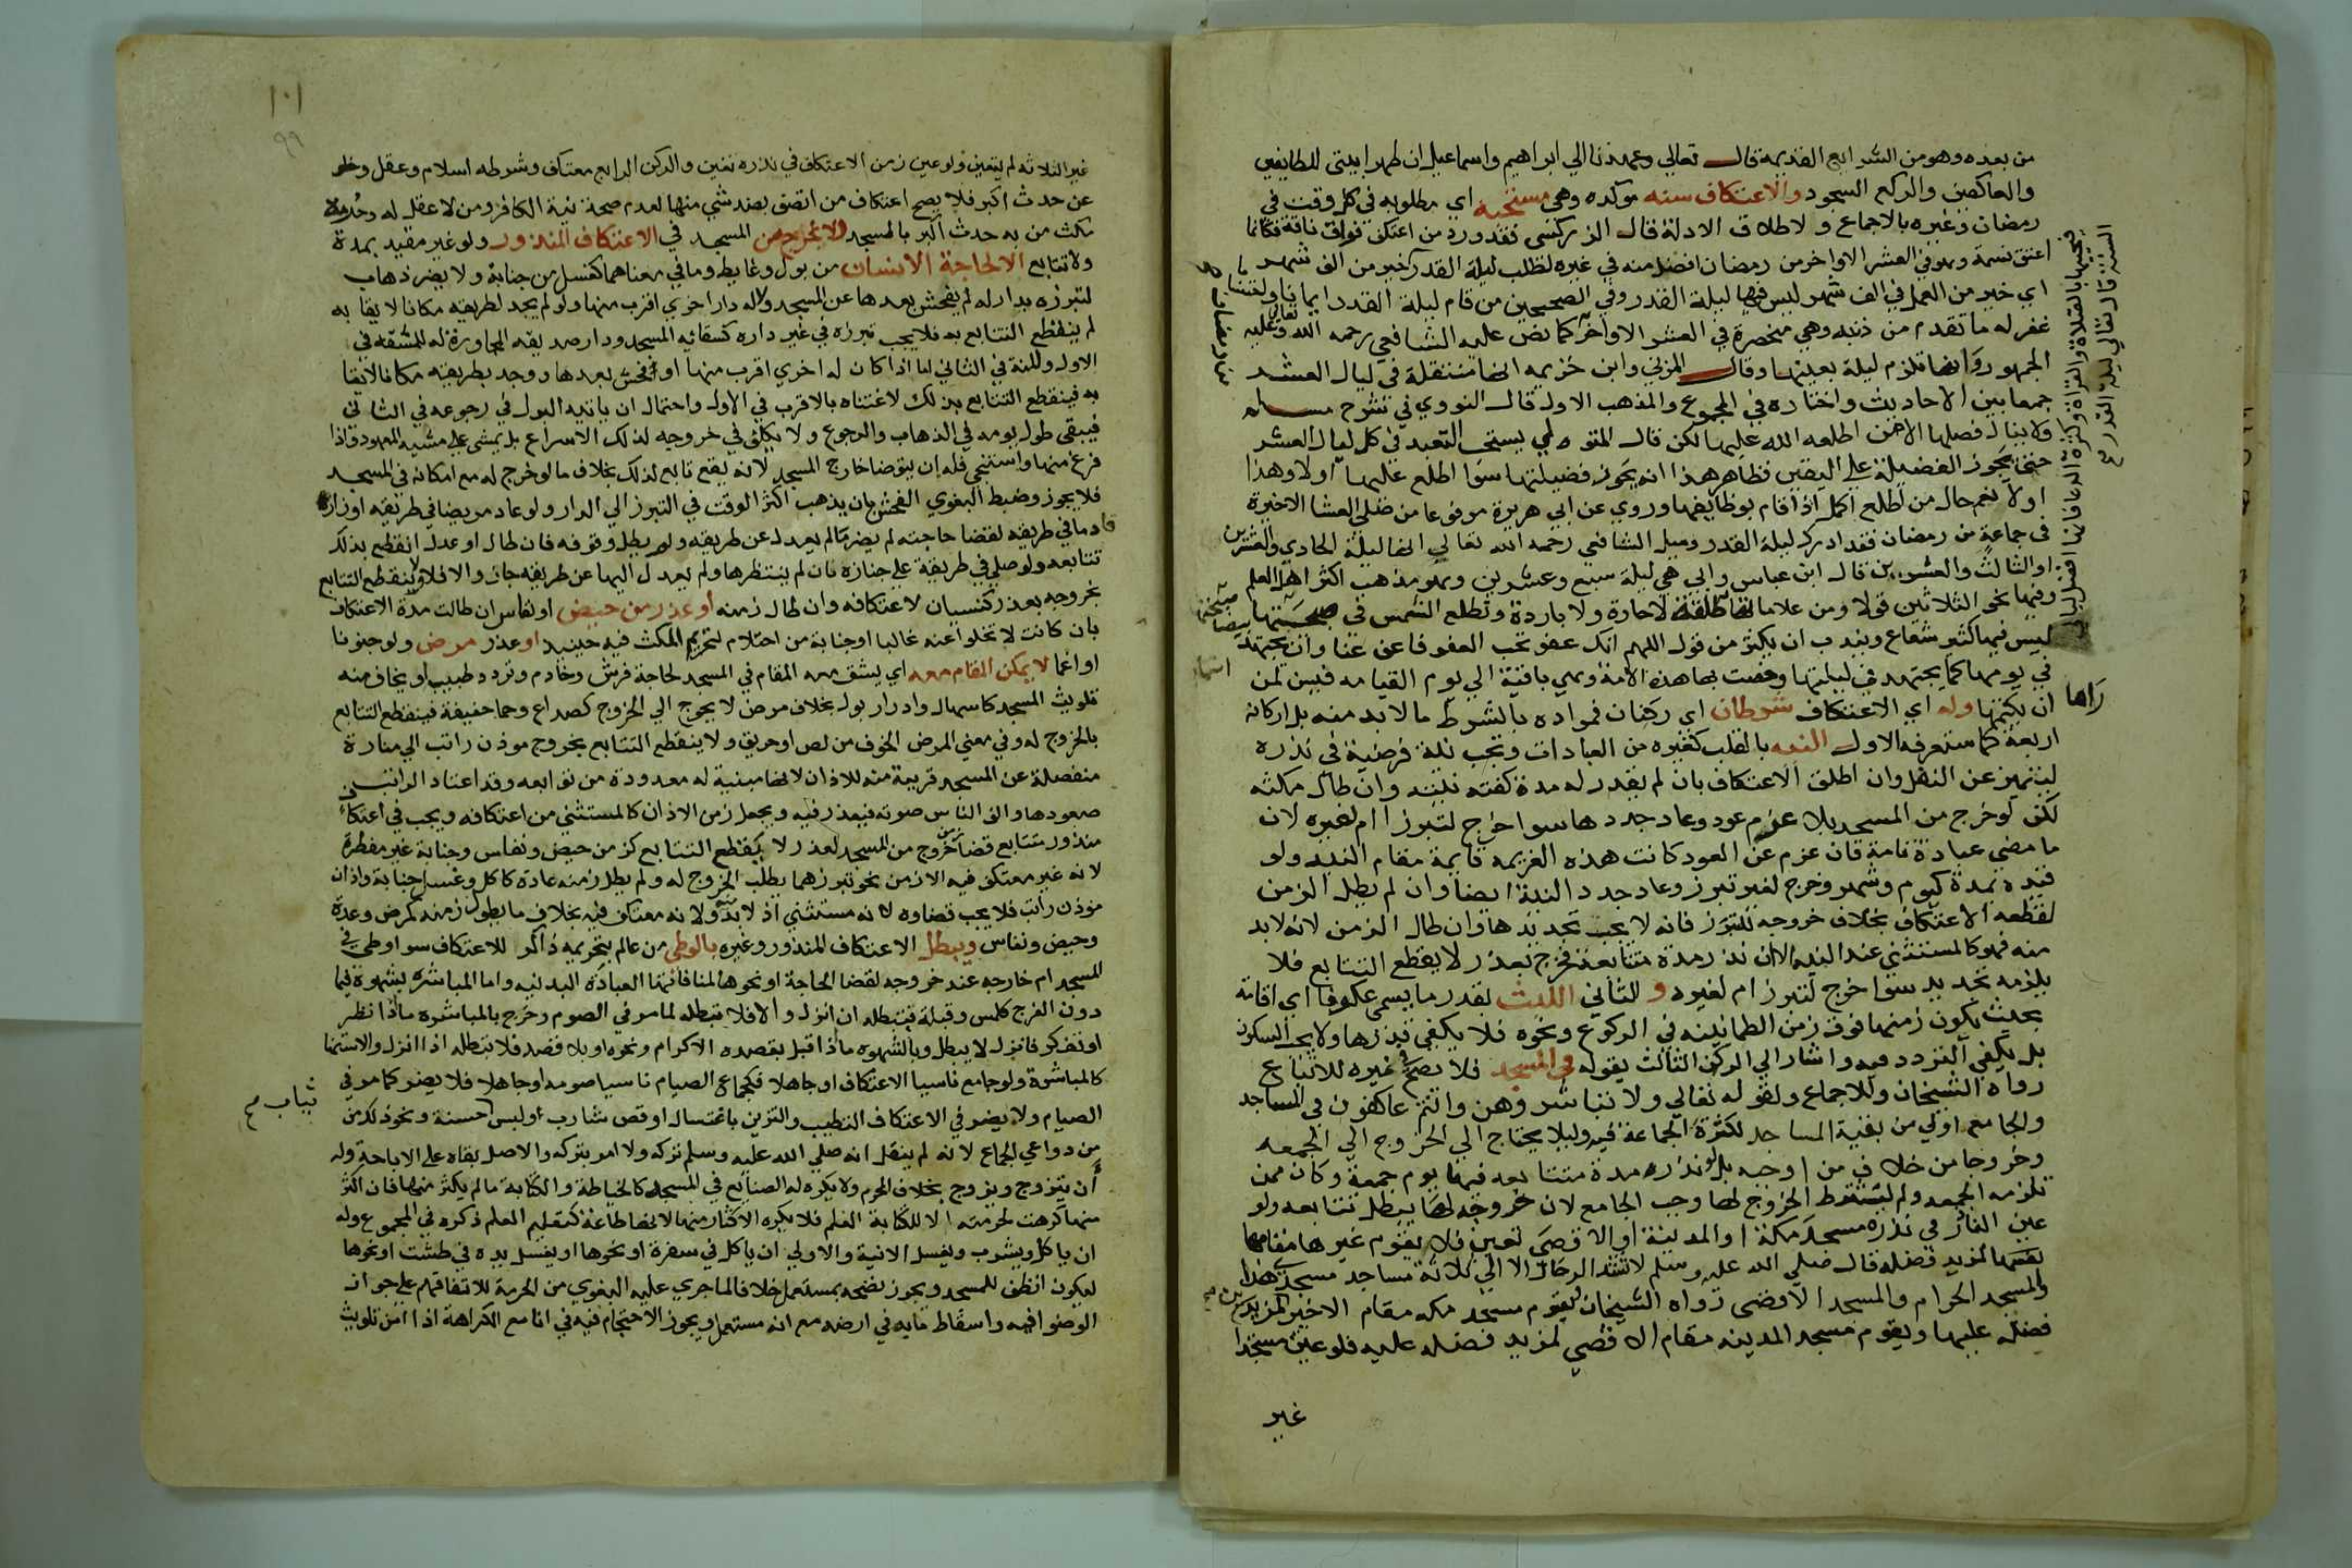 من بعده وهو من الشرايع القديمة قال تعالي وعهدنا الي ابراهيم واسماعيل ان طهرا بيتي للطايفين
والعاكفين والركع السجود والاعتكاف سنه موكده وهي مستحبه اي مطلوبه في كل وقت في
رمضان وغيره بالاجماع ولاطلاق الادلة قال الزركشي فقد ورد من اعتكف فواق ناقة فكانما
اعتق نسمة وهو في العشر الاواخر من رمضان افضل منه في غيره لطلب ليلة القدر خير من الف شهر
اي خير من العمل في الف شهر ليس فيها ليلة القدر وفي الصحيحين من قام ليلة القدر ايمانا واحتسابا
غفر له ما تقدم من ذنبه وهي منحصرة في العشر الاواخر كما نص عليه الشافعي رحمه الله تعالي وعليه
الجمهور وانها تلزم ليلة بعينها وقال المزني وابن خزيمه انها منتقلة في ليال العشر
جمعا بين الاحاديث واختاره في المجموع والمذهب الاول قال النووي في شرح مسلم
ولا ينال فضلها الا من اطلعه الله عليها لكن قال المتولي يستحب التعبد في كل ليال العشر
حتى يحوز الفضيلة علي اليقين فظاهر هذا انه يحوز فضيلتها سوا اطلع عليها اولا وهذا
اولا نعم حال من اطلع اكمل اذا قام بوظايفها وروي عن ابي هريرة مرفوعا من صلى العشا الاخيرة
في جماعة من رمضان فقد ادرك ليلة القدر وميل الشافعي رحمه الله تعالي الي انها ليلة الحادي والعشرين
او الثالث والعشرين قال ابن عباس وابي هي ليلة سبع وعشرين وهو مذهب اكثر اهل العلم
وفيها نحو الثلاثين قولا ومن علاماتها طلقة لا حارة ولا باردة وتطلع الشمس في صبيحتها
ليس فيها كثير شعاع ويندب ان يكثر من قول اللهم انك عفو تحب العفو فاعف عنا وان يجتهد
في يومها كما يجتهد في ليلتها وخصت بها هذه الامة وهي باقية الي يوم القيامه فيسن لمن
راها
ان يكتمها وله اي الاعتكاف شرطان اي ركنان فمراده بالشرط ما لا بد منه بل اركانه
اربعة كما ستعرفه الاول النيه بالقلب كغيره من العبادات وتجب نية فرضية في نذره
ليتميز عن النفل وان اطلق الاعتكاف بان لم يقدر له مدة كفته نيته وان طال مكثه
لكن لو خرج من المسجد بلا عزم عود وعاد جددها سوا خرج لتبرز ام لغيره لان
ما مضي عبادة تامة فان عزم عن العود كانت هذه العزيمه قايمة مقام النيه ولو
قيده بمدة كيوم وشهر وخرج لغير تبرز وعاد جدد النية ايضا وان لم يطل الزمن
لقطعه الاعتكاف بخلاف خروجه للتبرز فانه لا يجب تجديدها وان طال الزمن لانه لا بد
منه فهو كالمستثني عند النيه الا ان نذر مدة متتابعة فخرج بعذر لا يقطع التتابع فلا
يلزمه تجديد سوا خرج لتبرز ام لغيره و الثاني اللبث بقدر ما يسمى عكوفا اي اقامة
بحيث يكون زمنها فوق زمن الطمانينه في الركوع ونحوه فلا يكفي قدرها ولا يجب السكون
بل يكفي التردد فيه واشار الي الركن الثالث بقوله في المسجد فلا يصح في غيره للاتباع
رواه الشيخان وللاجماع ولقوله تعالي ولا تباشروهن وانتم عاكفون في المساجد
والجامع اولي من بقية المساجد لكثرة الجماعة فيه وليلا يحتاج الي الخروج الي الجمعه
وخروجا من خلاف من اوجبه بل لو نذر مدة متتابعه فيها يوم جمعة وكان ممن
تلزمه الجمعه ولم يشترط الخروج لها وجب الجامع لان خروجه لها يبطل تتابعه ولو
عين الناذر في نذره مسجد مكة او المدينة او الاقصي تعين فلا يقوم غيرها مقامها
لمزيد فضله قال صلي الله عليه وسلم لا تشد الرحال الا الي ثلاثة مساجد مسجدي هذا
والمسجد الحرام والمسجد الاقصى رواه الشيخان ويقوم مسجد مكه مقام الاخيرين لمزيد
فضله عليها ويقوم مسجد المدينه مقام الاقصي لمزيد فضله عليه فلو عين مسجدا
غير
١٠١
٩٩
غير الثلاثه لم يتعين ولو عين زمن الاعتكاف في نذره تعين والركن الرابع معتكف وشرطه اسلام وعقل وخلو
عن حدث اكبر فلا يصح اعتكاف من اتصف بضد شي منها لعدم صحة نية الكافر ومن لا عقل له وحرمة
مكث من به حدث اكبر بالمسجد ولا يخرج من المسجد في الاعتكاف المنذور ولو غير مقيد بمدة
ولا تتابع الا لحاجة الانسان من بول وغايط وما في معناهما كغسل من جنابة ولا يضر ذهاب
لتبرزه بدار له لم يفحش بعدها عن المسجد ولا له دار اخري اقرب منها ولو لم يجد لطريقه مكانا لايقا به
لم ينقطع التتابع به فلا يجب تبرزه في غير داره كسقايه المسجد ودار صديقه المجاورة له للمشقه في
الاول والمنة في الثاني اما اذا كان له اخري اقرب منها او فحش بعدها ووجد بطريقه مكانا لايقا
به فينقطع التتابع بذلك لاغتنايه بالاقرب في الاول واحتمال ان ياتيه البول في رجوعه في الثاني
فيبقى طول يومه في الذهاب والرجوع ولا يكلف في خروجه لذلك الاسراع بل يمشي على مشيه المعهود واذا
فرغ منها واستنجي فله ان يتوضا خارج المسجد لانه يقع تابع لذلك بخلاف ما لو خرج له مع امكانه في المسجد
فلا يجوز وضبط البغوي الفحش بان يذهب اكثر الوقت في التبرز الي الدار ولو عاد مريضا في طريقه او زار
قادما في طريقه لقضا حاجته لم يضر ما لم يعدل عن طريقه ولم يطل وقوفه فان طال او عدل انقطع بذلك
تتابعه ولو صلي في طريقه على جنازة فان لم ينتظرها ولم يعدل اليها عن طريقه جاز والا فلا ولا ينقطع التتابع
بخروجه بعذر كنسيان لاعتكافه وان طال زمنه او عذر من حيض او نفاس ان طالت مدة الاعتكاف
بان كانت لا تخلوا عنه غالبا او جنابة من احتلام لتحريم المكث فيه حينيذ او عذر مرض ولو جنونا
او اغما لا يمكن المقام معه اي يشق معه المقام في المسجد لحاجة فرش وخادم وتردد طبيب او يخاف منه
تلويث المسجد كاسهال وادرار بول بخلاف مرض لا يحوج الي الخروج كصداع وحما خفيفة فينقطع التتابع
بالخروج له وفي معني المرض الخوف من لص او حريق ولا ينقطع التتابع بخروج موذن راتب الي منارة
منفصلة عن المسجد قريبة منه للاذان لانها مبنية له معدودة من توابعه وقد اعتاد الراتب
صعودها والف الناس صوته فيعذر فيه ويجعل زمن الاذان كالمستثني من اعتكافه ويجب في اعتكاف
منذور متتابع قضا زمن خروج من المسجد لعذر لا يقطع التتابع كزمن حيض ونفاس وجنابة غير مفطرة
لانه غير معتكف فيه الا زمن نحو تبرز مما يطلب الخروج له ولم يطل زمنه عادة كاكل وغسل جنابة واذان
موذن راتب فلا يجب قضاوه لانه مستثني اذ لا بد منه ولانه معتكف فيه بخلاف ما يطول زمنه كمرض وعدة
وحيض ونفاس ويبطل الاعتكاف المنذور وغيره بالوطي من عالم بتحريمه ذاكر للاعتكاف سوا وطي في
المسجد ام خارجه عند خروجه لقضا الحاجة او نحوها لمنافاتها العبادة البدنيه واما المباشره بشهوة فيما
دون الفرج كلمس وقبلة فتبطله ان انزل والا فلا تبطله لما مر في الصوم وخرج بالمباشره ما اذا نظر
او تفكر فانزل لا يبطل وبالشهوه ما اذا قبل بقصده الاكرام ونحوه او بلا قصد فلا تبطله اذا انزل والاستمنا
كالمباشرة ولو جامع ناسيا الاعتكاف او جاهلا فكجماع الصيام ناسيا صومه او جاهلا فلا يضر كما مر في
الصيام ولا يضر في الاعتكاف التطيب والتزين باغتسال او قص شارب او لبس حسنة ونحو ذلك من
ثياب
من دواعي الجماع لانه لم ينقل انه صلي الله عليه وسلم تركه ولا امر بتركه والاصل بقاه على الاباحة وله
أن يتزوج ويزوج بخلاف المحرم ولا يكره له الصنايع في المسجد كالخياطة والكتابة ما لم يكثر منها فان اكثر
منها كرهت لحرمته الا للكتابة العلم فلا يكره الاكثار منها لانها طاعة كتعليم العلم ذكره في المجموع وله
ان ياكل ويشرب ويغسل الانية والاولي ان ياكل في سفرة او نحوها او يغسل يده في طشت او نحوها
ليكون انظف للمسجد ويجوز نضحه بمستعمل خلافا لما جري عليه البغوي من الحرمة للاتفاقهم على جواز
الوضوا فيه واسقاط مايه في ارضه مع انه مستعمل ويجوز الاحتجام فيه في انا مع الكراهة اذا امن تلويث